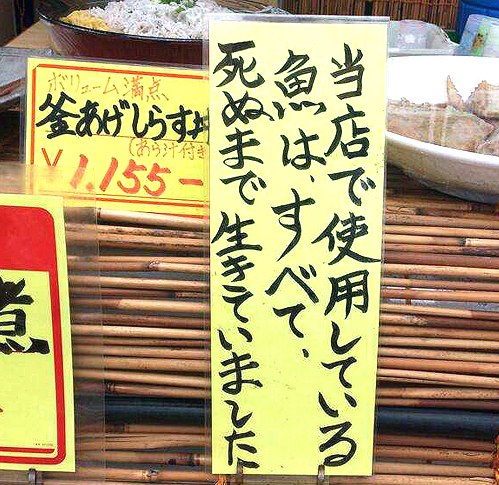 当店で使用している
魚は、すべて、
死ぬまで生きていました
ボリューム満点
釜あげしらす丼
(あら汁付き)
¥1.155-
煮